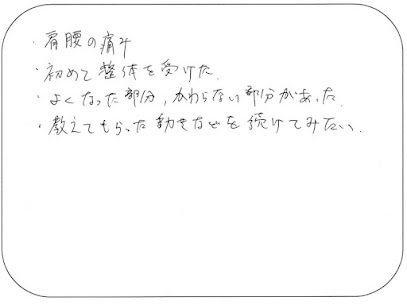 ・肩腰の痛み
・初めて整体を受けた.
・よくなった部分,かわらない部分があった.
・教えてもらった動きなどを続けてみたい.